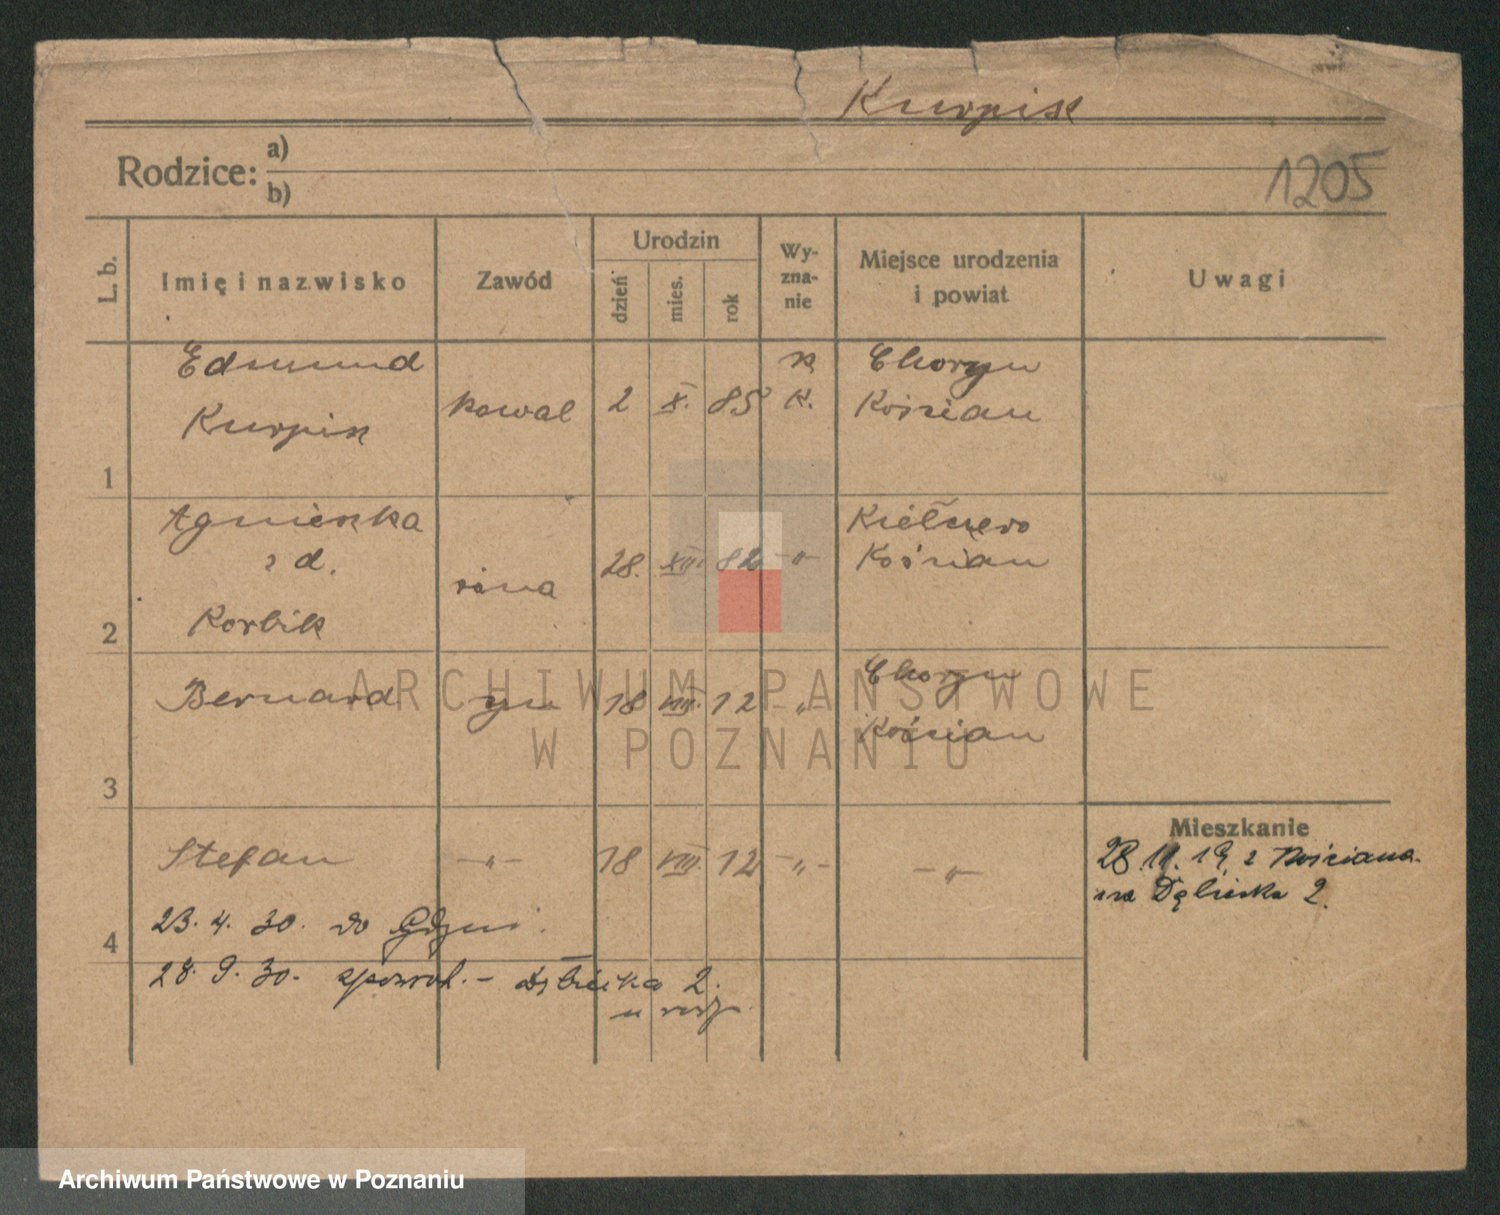 Kurpisz
1205
Rodzice: a)
b)
L. b.
Imię i nazwisko
Zawód
Urodzin
dzień
mies.
rok
Wy-
zna-
nie
Miejsce urodzenia
i powiat
Uwagi
1
Edmund
Kurpisz
kowal
2
X.
85
K.
Choryn
Kościan
2
Agnieszka
z d.
Korbik
żona
28.
XII.
82
-„-
Kiełczewo
Kościan
3
Bernard
syn
18
VIII.
12
-„-
Choryn
Kościan
4
Stefan
-„-
18
VIII.
12
-„-
-„-
Mieszkanie
28.11.19 z Kościana
na Dębiecka 2.
23. 4. 30. do Gdyni.
28. 9. 30. - Dębiecka 2.
ARCHIWUM PAŃSTWOWE
W POZNANIU
Archiwum Państwowe w Poznaniu